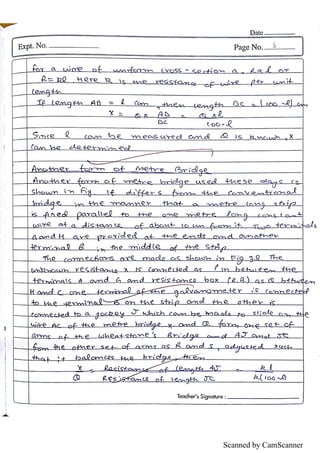 Date
Expt. No.
Page No. 5
For a wire of uniform cross-section a, R∝l or
R=Rl Here R is the resistance of wire per unit
length
If length AB = l cm, then length DC a (100-l) cm
x = Q x AD = Q xl
DC 100-l
Since l can be measured and Q is known, x
can be determined
Another form of Metre Bridge
Another form of metre bridge used these days is
shown in Fig. It differs from the conventional
bridge in the manner that a metre long strip
is fixed parallel to the one metre long constant
wire at a distance of about 10 cm from it. Two terminals
G and H are provided at the ends and another
terminal B in the middle of the strip
The connections are made as shown in Fig 3.8 The
unknown resistance x is connected as P in between the
terminals A and G and resistance box (R.B) as Q between
H and C one terminal of the galvanometer is connected
to the terminal B on the strip and the other is
connected to a jockey J which can be made to slide on the
wire AC of the metre bridge, x and Q form one set of
arms of the wheatstone's Bridge and AJ and JC
form the other set of arms as R and S, adjusted such
that it balances the bridge, then
x = Resistance of length AJ = kl
Q Resistance of length JC k(100-l)
Teacher's Signature :
Scanned by CamScanner